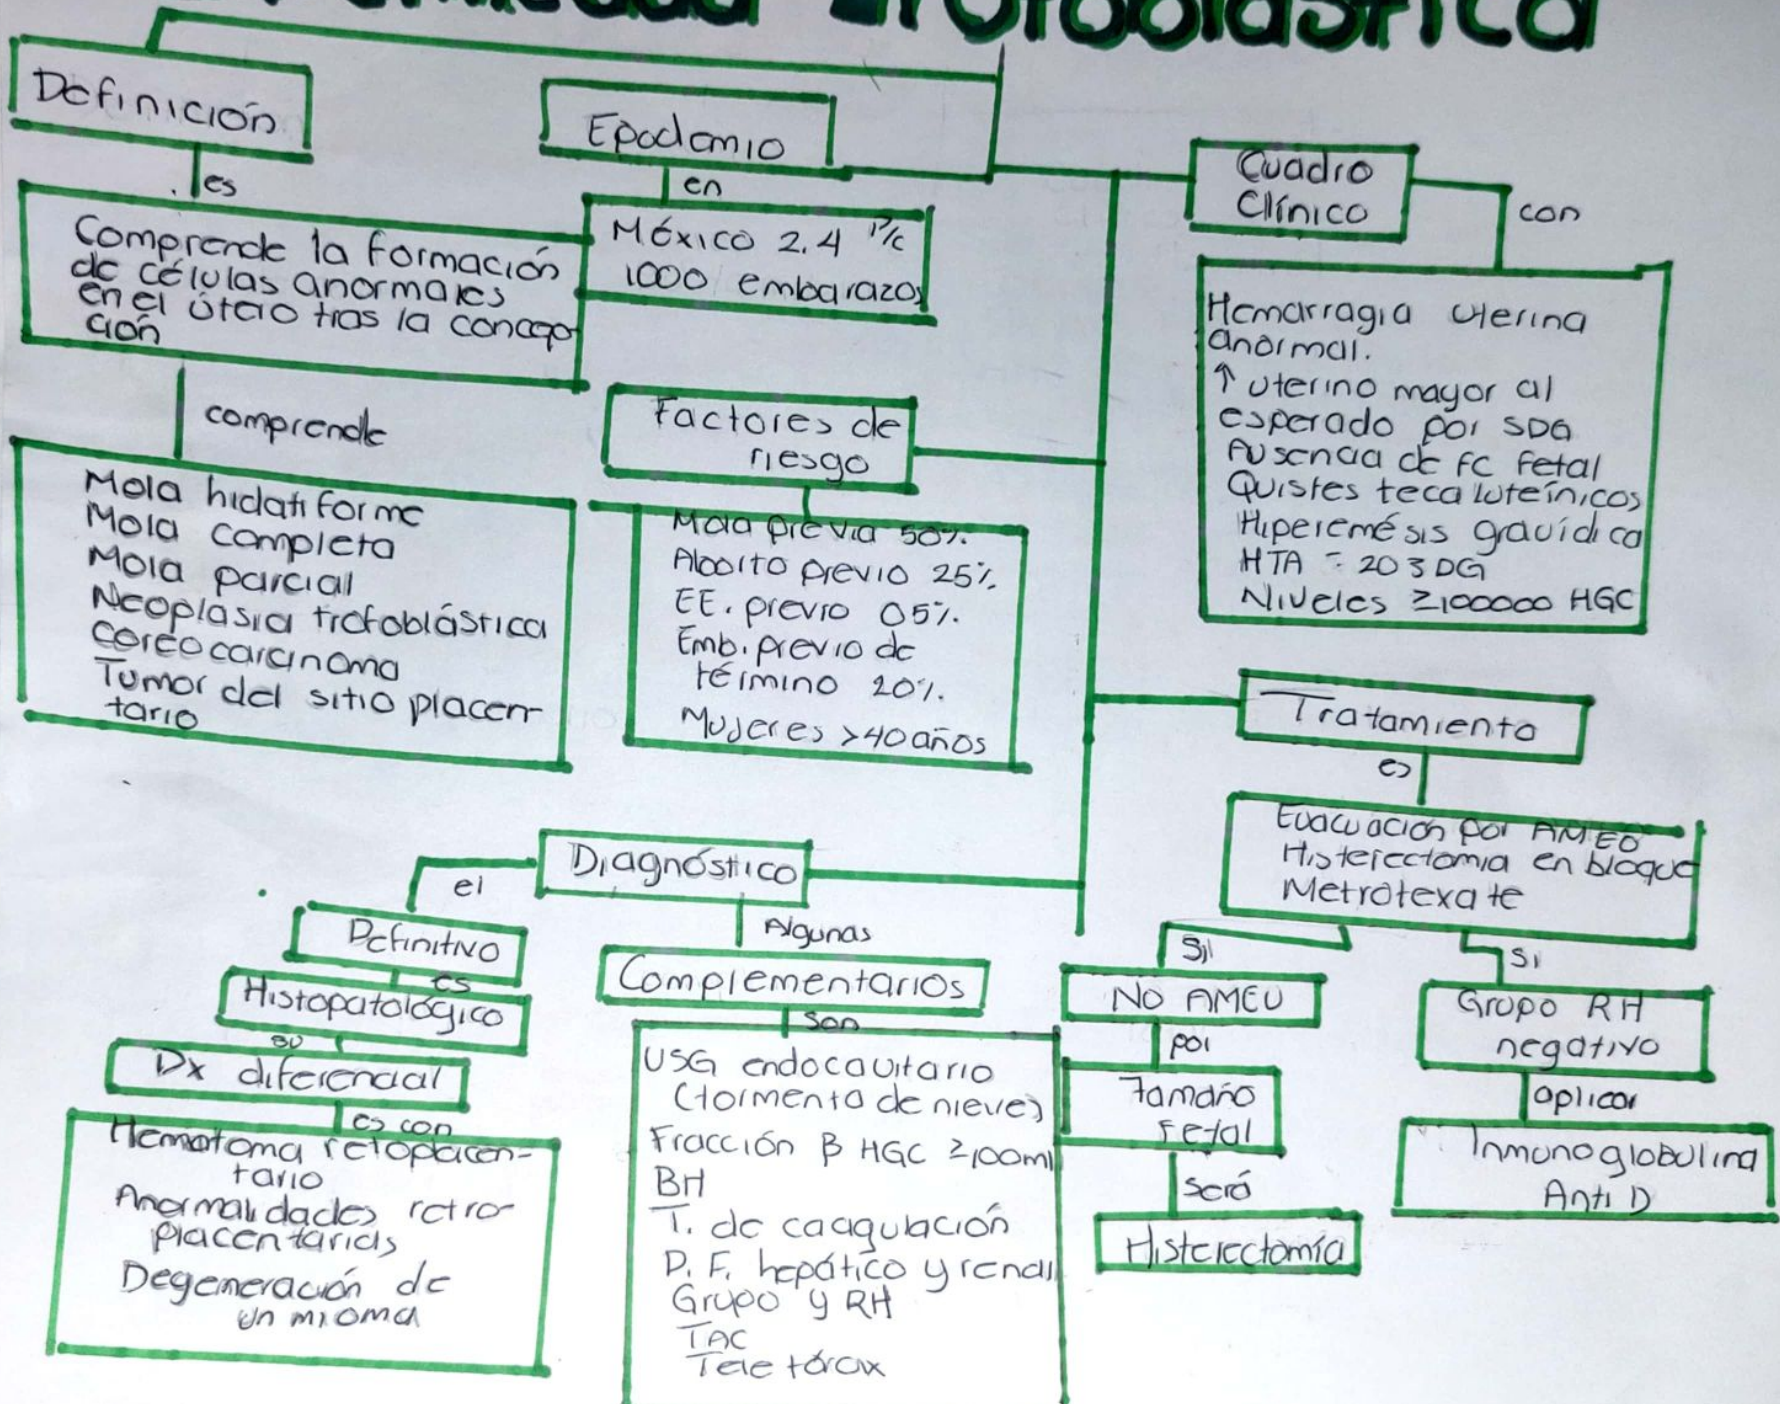 Trofoblástica
Definición
es
Comprende la formación
de células anormales
en el útero tras la concep
ción
comprende
Mola hidatiforme
Mola completa
Mola parcial
Neoplásia trofoblástica
Coreocarcinoma
Tumor del sitio placen-
tario
Epodemio
en
México 2.4 P/c
1000 embarazos
Factores de
riesgo
Mola previa 50%.
Aborto previo 25%.
EE. previo 05%.
Emb. previo de
término 20%.
Mujeres >40 años
Cuadro
Clínico
con
Hemarragia uterina
anormal.
↑ uterino mayor al
esperado por SDG
Ausencia de fc fetal
Quistes teca luteínicos
Hiperemésis gravídica
HTA
Niveles ≥100000 HGC
Tratamiento
es
Evacuación por AMEO
Histerectomia en bloque
Metrotexate
Si
NO AMEU
por
Tamaño
Fetal
Será
Histerectomía
Si
Grupo RH
negativo
aplicar
Inmunoglobulina
Anti D
Diagnóstico
el
Definitivo
es
Histopatológico
su
Dx diferencial
es con
Hematoma retoplacen-
tario
Anormalidades retro-
placentarias
Degeneración de
un mioma
Algunas
Complementarios
son
USG endocavitario
(tormenta de nieve)
Fracción β HGC ≥100ml
BH
T. de coagulación
P. F. hepático y renal
Grupo y RH
TAC
Tele tórax